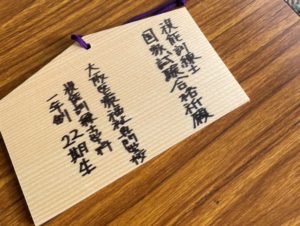 視能訓練士
国家試験合格祈願
大阪医療福祉専門学校
視能訓練士学科
一年制 22期生